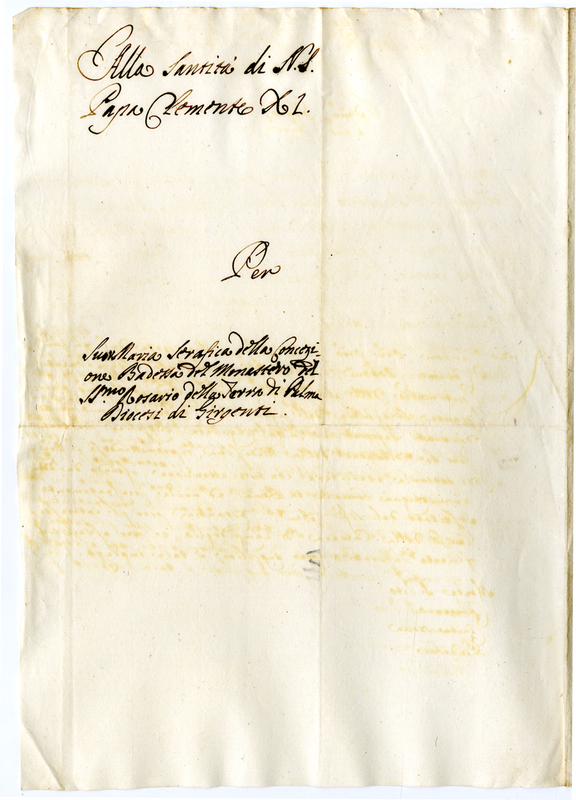 Alla Santità di N.S.
Papa Clemente XI.
Per
Suor Maria Serafica della Concezi-
one Badessa del Monastero del
SS.mo Rosario della Terra di Palma
Diocesi di Girgenti.